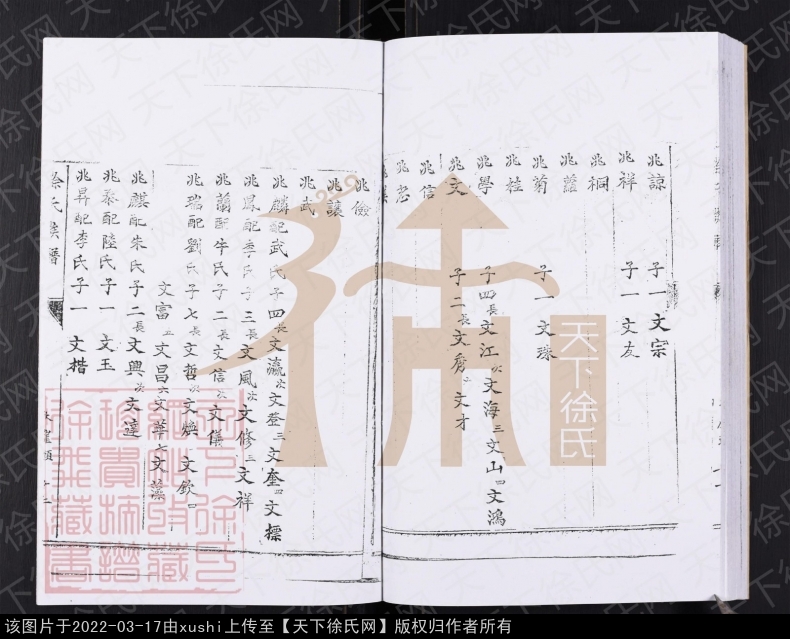 兆諒 子一文宗
兆祥 子一文友
兆桐
兆蘭
兆菊 子一文
兆桂
兆學 子四長文江次文海三文山四文鴻
兆文 子二長文秀次文才
兆信
兆忠
兆儉
兆讓
兆武
兆麟配武氏子四長文瀛次文登三文奎四文標
兆鳳配李氏子三長文風次文修三文祥
兆蘭配牛氏子二長文信次文儀
兆瑞配劉氏子七長文哲次文煥 文欽四
文富五文昌六文華七文藻
兆麒配朱氏子二長文興次文達
兆泰配陸氏子一文玉
兆昇配李氏子一文楷
徐氏族譜
天下徐氏
天下徐氏网
该图片于2022-03-17由xushi上传至【天下徐氏网】版权归作者所有